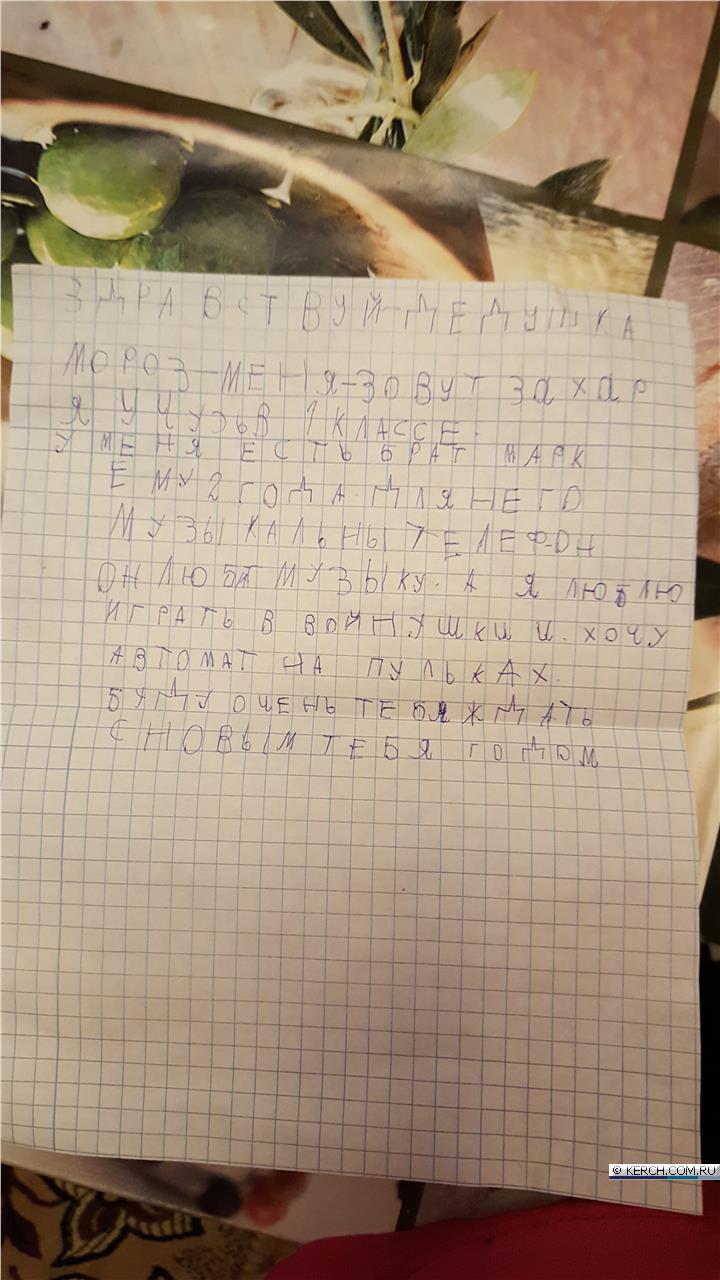 ЗДРАВСТВУЙ-ДЕДУШКА
МОРОЗ-МЕНЯ-ЗОВУТ ЗАХАР
Я УЧУЗЬВ 1 КЛАССЕ.
У МЕНЯ ЕСТЬ БРАТ МАРК
ЕМУ 2 ГОДА. ДЛЯ НЕГО
МУЗЫКАЛЬНЫ ТЕЛЕФОН
ОН ЛЮБТ МУЗЫКУ. А Я ЛЮБЛЮ
ИГРАТЬ В ВОЙНУШКИ И. ХОЧУ
АВТОМАТ НА ПУЛЬКАХ.
БУДУ ОЧЕНЬ ТЕБЯ ЖДАТЬ
С НОВЫМ ТЕБЯ ГОДОМ
© KERCH.COM.RU